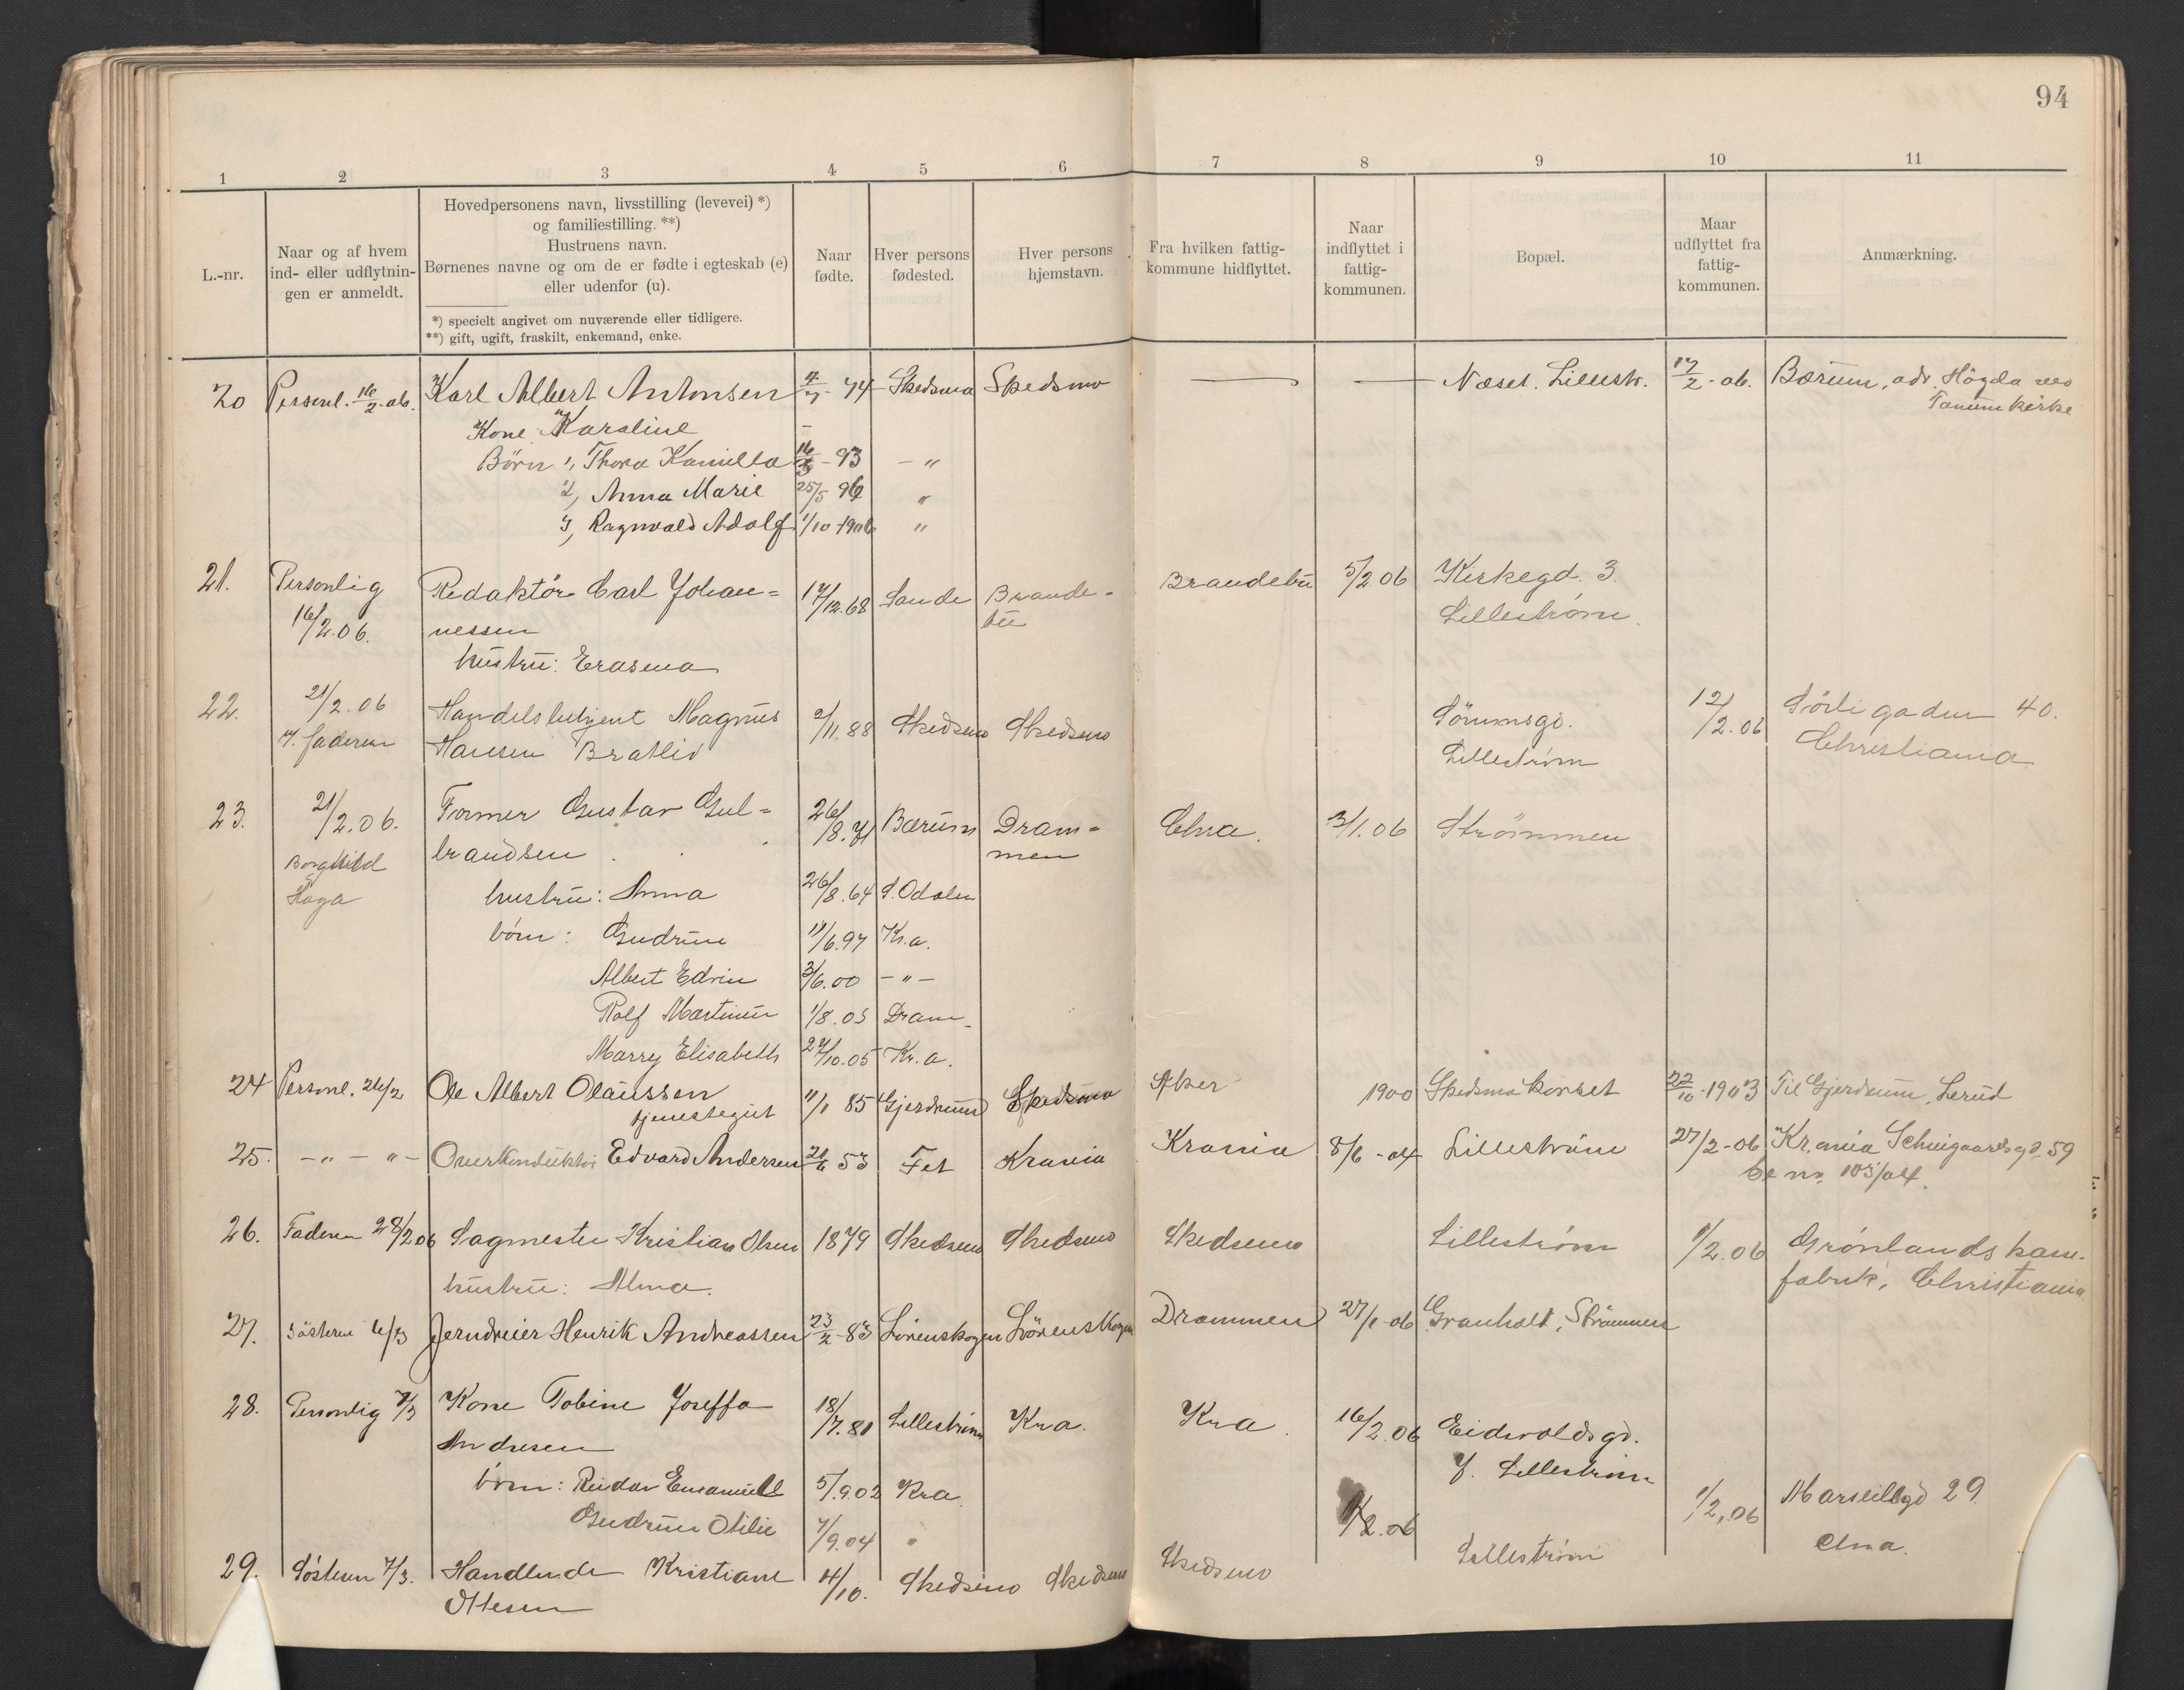 94
1 2 3 4 5 6 7 8 9 10 11
L.-nr.
Naar og af hvem
ind- eller udflytnin-
gen er anmeldt.
Hovedpersonens navn, livsstilling (levevei) *)
og familiestilling. **)
Hustruens navn.
Børnenes navne og om de er fødte i egteskab (e)
eller udenfor (u).
*) specielt angivet om nuværende eller tidligere.
**) gift, ugift, fraskilt, enkemand, enke.
Naar
fødte.
Hver persons
fødested.
Hver persons
hjemstavn.
Fra hvilken fattig-
kommune hidflyttet.
Naar
indflyttet i
fattig-
kommunen.
Bopæl.
Maar
udflyttet fra
fattig-
kommunen.
Anmærkning.
20 Personl. 16/2-06. Karl Albert Antonsen 4/7-74 Skedsmo Skedsmo — — Næset. Lillestr. 17/2-06. Bærum, adr. Högda ved
Tanum kirke
Kone Karoline –
Børn 1, Thora Kamilla 93 – "
2, Anna Marie 25/5 96 "
3, Ragnvald Adolf 1/10 1906 "
21. Personlig Redaktör Carl Johan= 17/12.68 Sande Brande- Brandebu 5/2 06 Kirkegd. 3.
16/2.06. nessen bu Lillestrøm.
hustru: Erasma
22. 21/2.06 Handelsbetjent Magnus 2/11.88 Skedsmo Skedsmo Sörumsgd. 12/2.06 Sörligaden 40.
v. faderen Hansen Bratlid Lillestrøm Christiania
23. 21/2.06. Former Gustav Gul= 26/8.71 Bærum Dram= Chra. 3/1.06 Strømmen
Borghild brandsen men
Haga hustru: Anna 26/8.64 S. Odalen
børn: Gudrun 11/6.97 Kr.a.
Albert Edvin 3/6.00 – " –
Rolf Martinus 1/8.03 Dram-
Marry Elisabeth 27/10.05 Kr.a.
24 Personl. 26/2 Ole Albert Olaussen 11/1 85 Gjerdrum Skedsmo Aker 1900 Skedsmokorset 22/10-1903 Til Gjerdrum, Lerud
tjenestegut
25. – " – " – Overkonduktör Edvard Andersen 53 Fet Krania Krania 8/6-04 Lillestrøm 27/2-06 Kr.ania Schweigaardsgd. 59
Se no. 103/04.
26. Faderen 28/2 06 Sagmester Kristian Olsen 1879 Skedsmo Skedsmo Skedsmo Lillestrøm 1/2.06 Grønlands kasse-
hustru: Alma. fabrik, Christiania
27. Søsteren 6/3 Jerndreier Henrik Andreassen 23/2-83 Lørenskogen Lørenskogen Drammen 27/1-06 Granholt, Strømmen
28. Personlig 7/3 Kone Tobine Joseffa 18/7.81 Lillestrøm Kra. Kra. 16/2.06 Eidsvoldsgd.
Andresen 7. Lillestrøm
børn: Reidar Emanuell 5/9.02 Kra.
Gudrun Otilie 7/9.04 "
29. Søsteren 7/3. Handlende Kristiane 4/10. Skedsmo Skedsmo Skedsmo 1/2.06 Lillestrøm 1/2.06 Marseillsgd 29.
Ottesen Chra.